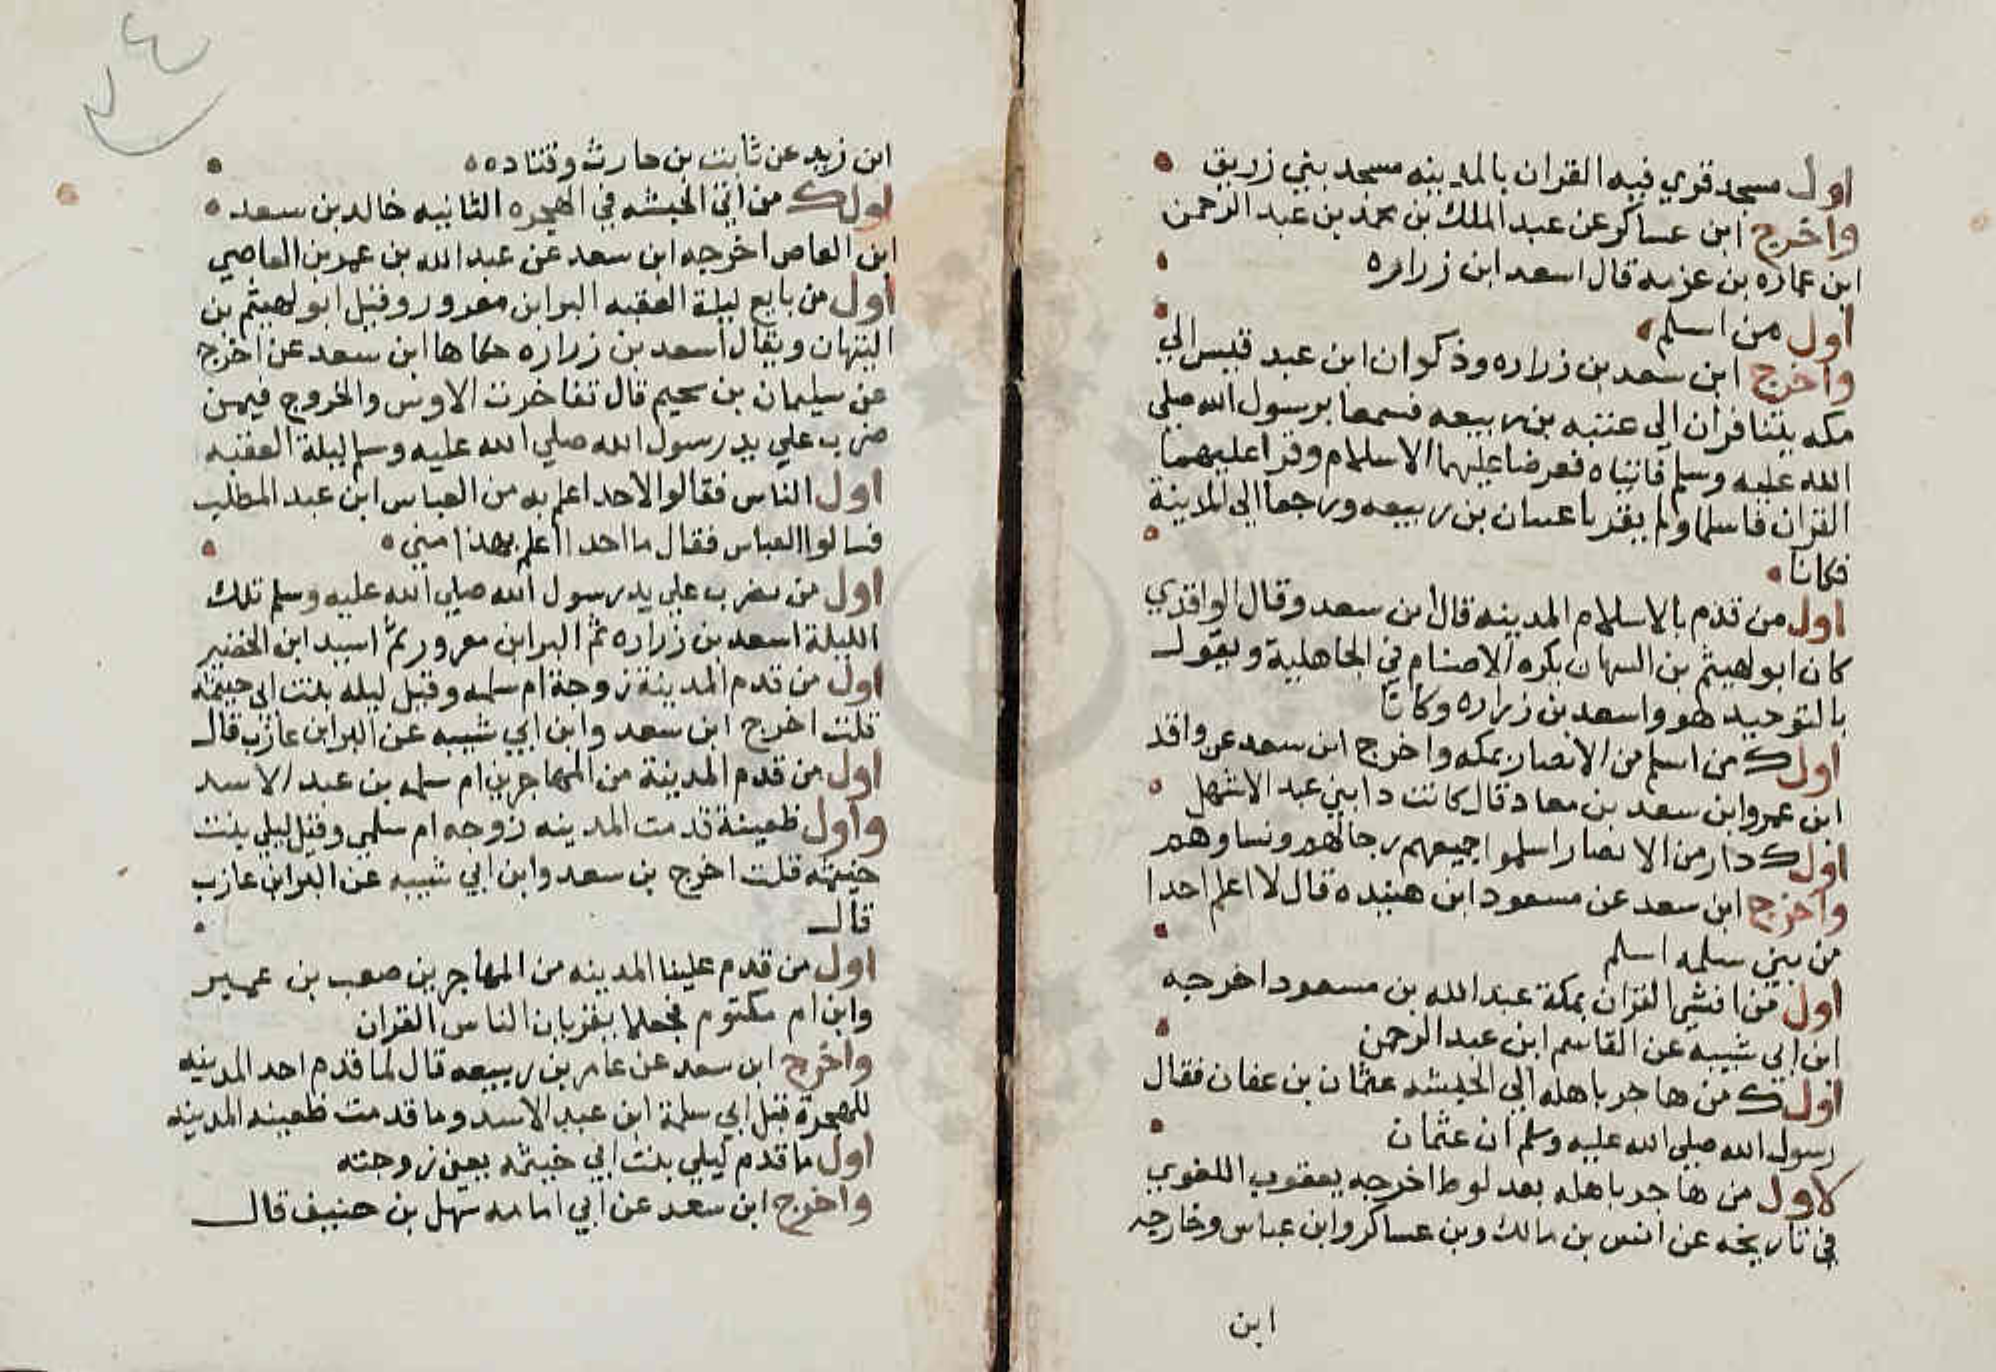 اول مسجد قري فيه القران بالمدينه مسجد بني زريق
واخرج ابن عساكر عن عبد الملك بن محمد بن عبد الرحمن
ابن عماره بن عزيه قال اسعد ابن زراره
اول من اسلم
واخرج ابن سعد بن زراره وذكوان ابن عبد قيس الي
مكه يتنافران الي عتبه بن ربيعه فسمعا برسول الله صلي
الله عليه وسلم فاتياه فعرض عليهما الاسلام وقرا عليهما
القران فاسلما ولم يقربا عتبان بن ربيعه ورجعا الي المدينة
فكانا
اول من قدم بالاسلام المدينه قال ابن سعد وقال الواقدي
كان ابو لهيثم بن التيهان يكره الاصنام في الجاهلية ويقول
بالتوحيد هو واسعد بن زراره وكانا
اول من اسلم من الانصار بمكه واخرج ابن سعد عن واقد
ابن عمرو ابن سعد بن معاد قال كانت دار بني عبد الاشهل
اول دار من الانصار اسلموا جميعهم رجالهم ونساوهم
واخرج ابن سعد عن مسعود ابن هنيده قال لا اعلم احدا
من بني سلمه اسلم
اول من افشي القران بمكة عبد الله بن مسعود اخرجه
ابن ابي شيبه عن القاسم ابن عبد الرحمن
اول من هاجر باهله الي الحبشه عثمان بن عفان فقال
رسول الله صلي الله عليه وسلم ان عثمان
لاول من هاجر باهله بعد لوط اخرجه يعقوب اللغوي
في تاريخه عن انس بن مالك وبن عساكر وابن عباس وخارجه
ابن
ابن زيد عن ثابت بن حارث وقتاده
اول من اتي الحبشه في الهجره الثانيه خالد بن سعد
ابن العاص اخرجه ابن سعد عن عبد الله بن عمر بن العاصي
اول من بايع ليلة العقبه البرا ابن معرور وقيل ابو لهيثم بن
التيهان ويقال اسعد بن زراره حكاها ابن سعد عن اخرج
عن سليمان بن سحيم قال تفاخرت الاوس والخروج فيمن
ضرب علي يد رسول الله صلي الله عليه وسلم ليلة العقبه
اول الناس فقالوا لاحد اعلم به من العباس ابن عبد المطلب
فسالوا العباس فقال ما احد اعلم بهذا مني
اول من ضرب علي يد رسول الله صلي الله عليه وسلم تلك
الليلة اسعد بن زراره ثم البرا ابن معرور ثم اسيد ابن الحضير
اول من قدم المدينة زوجة ام سلمه وقيل ليله بنت ابي حيثمه
قلت اخرج ابن سعد وابن ابي شيبه عن البرا ابن عازب قال
اول من قدم المدينة من المهاجرين ام سلمه بن عبد الاسد
واول ظعينة قدمت المدينه زوجه ام سلمي وقيل ليلي بنت
حيثمه قلت اخرج بن سعد وابن ابي شيبه عن البرا ابن عازب
قال
اول من قدم علينا المدينه من المهاجرين صعب بن عمير
وابن ام مكتوم فجعلا يقريان الناس القران
واخرج ابن سعد عن عامر بن ربيعه قال لما قدم احد المدينه
للهجرة قبل ابي سلمة ابن عبد الاسد وما قدمت ظعينه المدينه
اول ما قدم ليلي بنت ابي خيثمه يعني زوجته
واخرج ابن سعد عن ابي امامه سهل بن حنيف قال